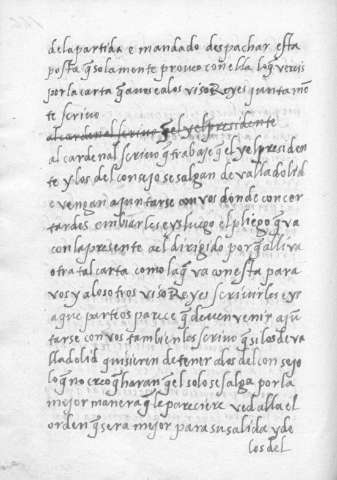 dela partida e mandado despachar esta
posta q̃ solamente proueo con ella lo q̃ vereis
por la carta q̃ a vos e a los viso Reyes juntamē
te scriuo
al cardenal scriuo q̃ el y el presidente
al cardenal scriuo q̃ trabaje q̃ el y el presiden
te y los del consejo se salgan de valladolid
e vengan a juntarse con vos donde concer
tardes embiarles eys luego el pliego q̃ va
con la presente a el dirigido por q̃ alli va
otra tal carta como la q̃ va con esta para
vos y a los otros viso Reyes scriuirles eys
a que parte os parece q̃ deuen venir a jū
tarse con vos tambien les scriuo q̃ si los de va
lladolid quisieren detener a los del consejo
lo q̃ no creo q̃ haran q̃ el solo se salga por la
mejor manera q̃ le pareciere ved alla el
orden q̃ sera mejor para su salida y de
los del